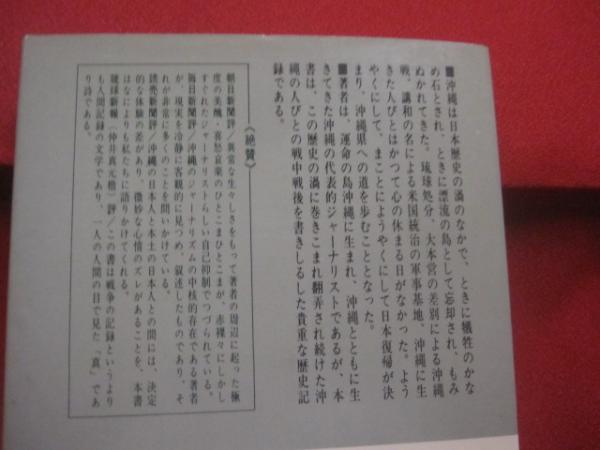 ■沖縄は日本歴史の渦のなかで、ときに犠牲のかな
め石とされ、ときに漂流の島として忘却され、もみ
ぬかれてきた。琉球処分、大本営の差別による沖縄
戦、講和の名による米国統治の軍事基地、沖縄に生
きた人びとはかつて心の休まる日がなかった。よう
やくにして、まことにようやくにして日本復帰が決
まり、沖縄県への道を歩むこととなった。
■著者は、運命の島沖縄に生まれ、沖縄とともに生
きてきた沖縄の代表的ジャーナリストであるが、本
書は、この歴史の渦に巻きこまれ翻弄され続けた沖
縄の人びとの戦中戦後を書きしるした貴重な歴史記
録である。
《絶賛》
朝日新聞評／異常な生々しさをもって著者の周辺に起った極
度の美醜・喜愁哀楽のひとこまひとこまが、赤裸々にしかし
すぐれたジャーナリストらしい自己抑制でつづられている。
毎日新聞評／沖縄のジャーナリズムの中核的存在である著者
が、現実を冷静に客観的に見つめ、叙述したものであり、そ
れが非常に多くのことを問いかけている。
読売新聞評／沖縄の日本人と本土の日本人との間には、決定
的な体験の差があり、微妙な心情のズレがあることを、本書
はなによりも私たちに語りかけてくれる。
琉球新報（仲井真元楷）評／この書は戦争の記録というより
も人間記録の文学であり、一人の人間の目で見た「真」であ
り詩である。